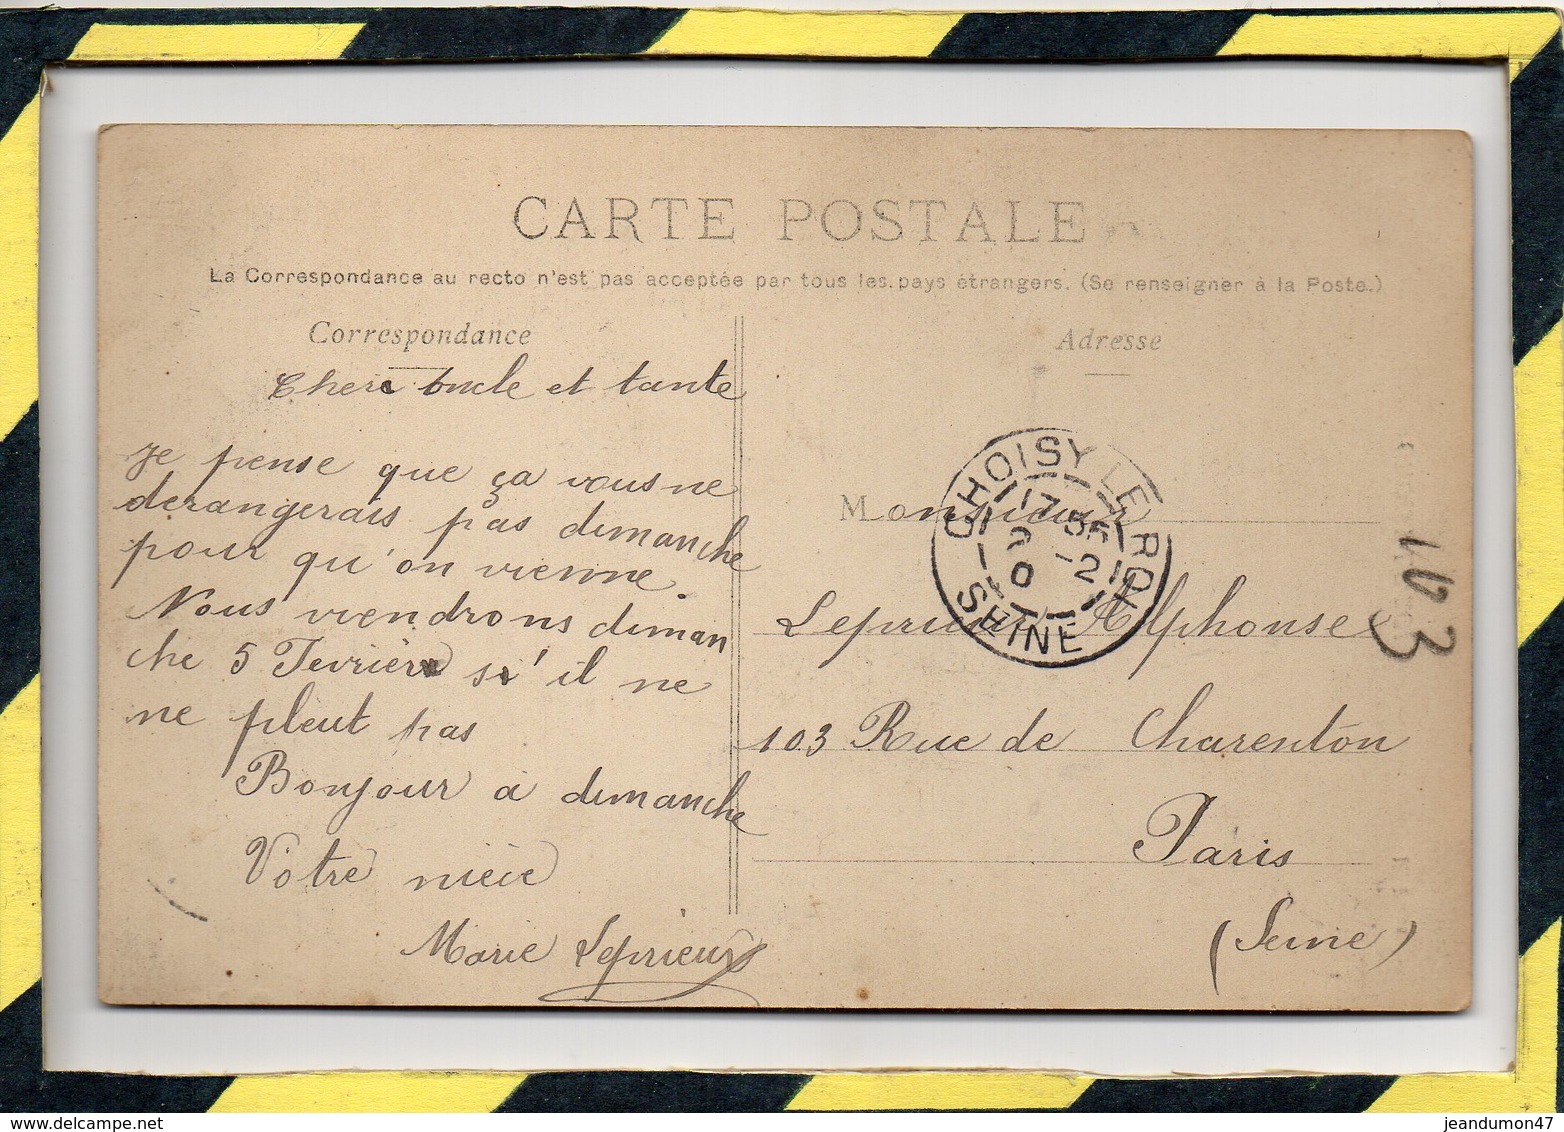 CARTE POSTALE
La Correspondance au recto n'est pas acceptée par tous les pays étrangers. (Se renseigner à la Poste.)
Correspondance
Cher oncle et tante
Je pense que ça vous ne
derangerais pas dimanche
pour qu'on vienne.
Nous viendrons diman
che 5 Fevrier s'il ne
ne pleut pas
Bonjour a dimanche
Votre nièce
Marie Leprieur
Adresse
CHOISY LE ROI
17 55
-2
0
SEINE
Monsieur
Leprieur Alphonse
103 Rue de Charenton
Paris
(Seine)
103
delcampe.net
jeandumon47